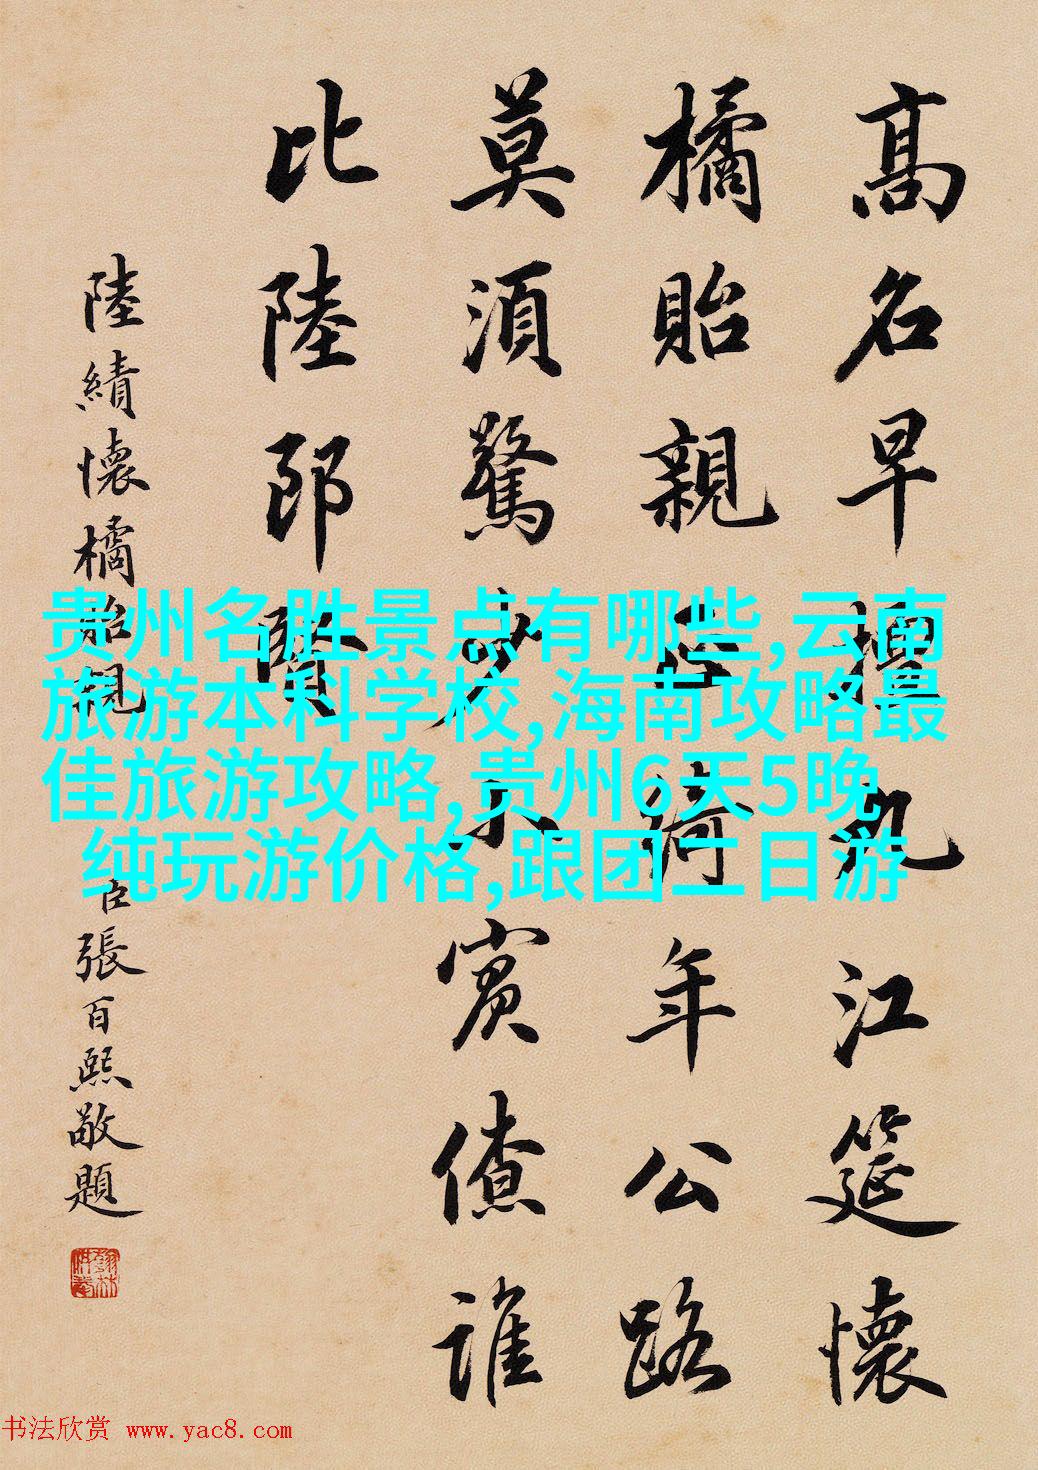 高名早擅九江筵懷
橘貽親綺年公路
莫須驚少小賓僚誰
比陸郎賢
陸績懷橘貽親
臣張百熙敬題
贵州名胜景点有哪些,云南
旅游本科学校,海南攻略最
佳旅游攻略,贵州6天5晚
纯玩游价格,跟团二日游
书法欣赏 www.yac8.com